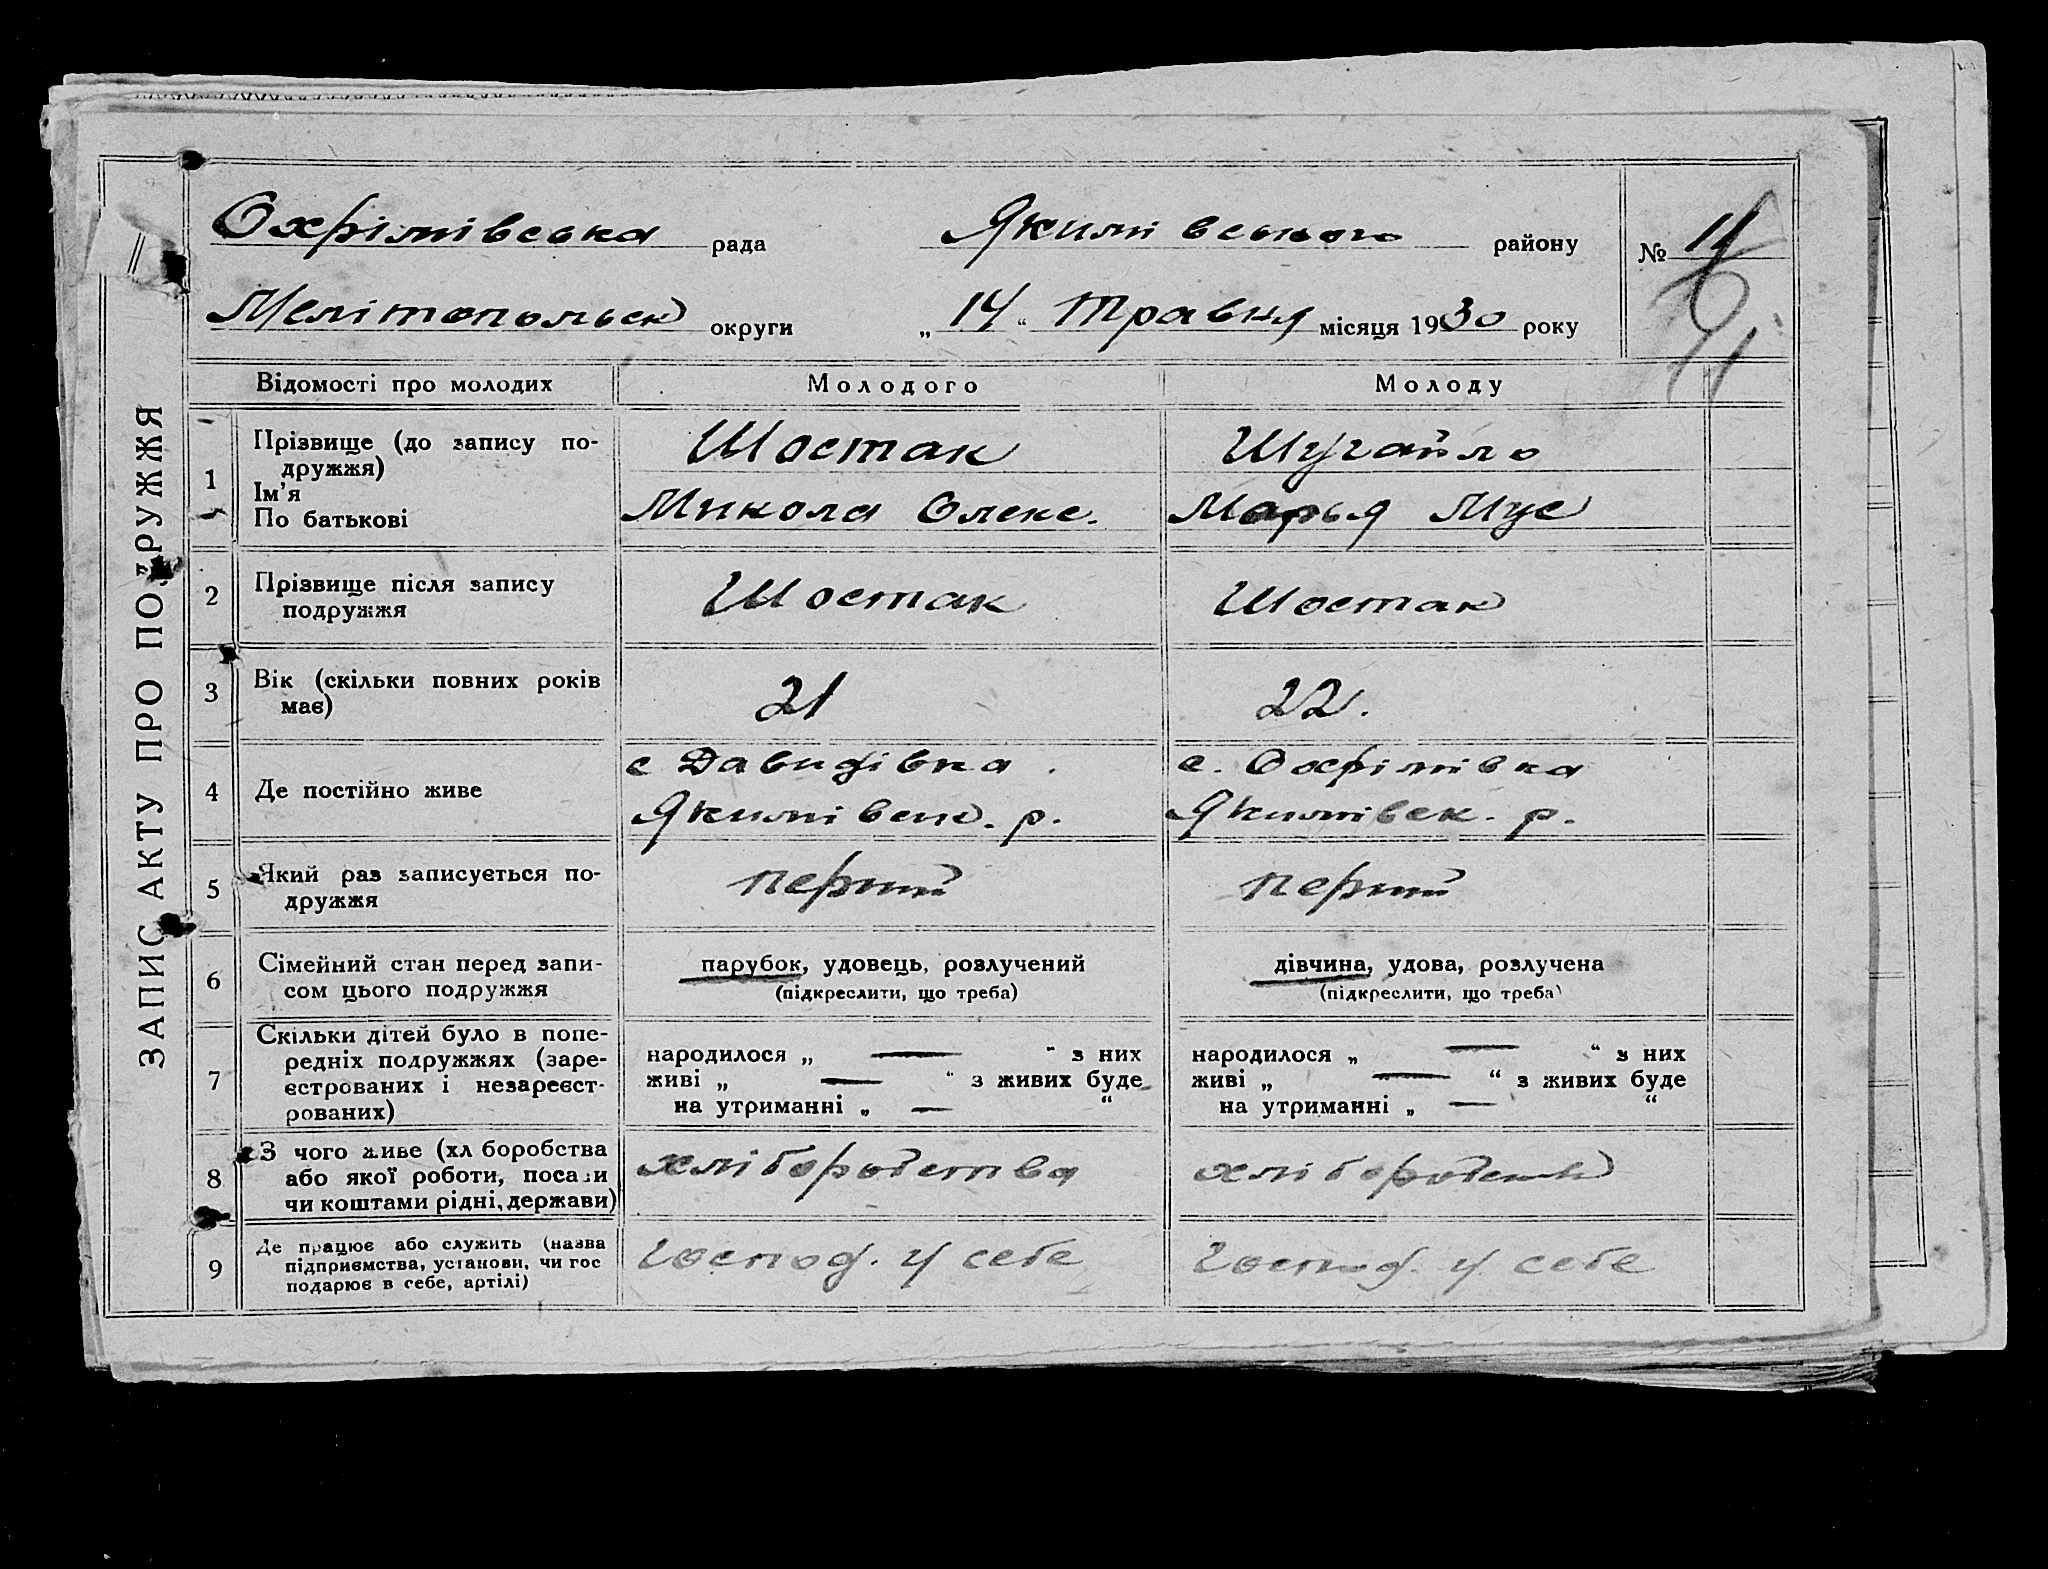 ЗАПИС АКТУ ПРО ПОДРУЖЖЯ
Охрімівська рада Якимівського району № 11
Мелітопольск округи „14“ Травня місяця 1930 року
Відомості про молодих Молодого Молоду
1 Прізвище (до запису по-
дружжя)
Ім'я
По батькові
Шостак
Микола Олекс.
Шугайло
Марья Мус
2 Прізвище після запису
подружжя
Шостак
Шостак
3 Вік (скільки повних років
має)
21
22.
4 Де постійно живе
с Давидівка.
Якимівськ. р.
с. Охрімівка
Якимівск. р.
5 Який раз записується по-
дружжя
перший
перший
6 Сімейний стан перед запи-
сом цього подружжя
парубок, удовець, розлучений
(підкреслити, що треба)
дівчина, удова, розлучена
(підкреслити, що треба)
7 Скільки дітей було в попе-
редніх подружжях (заре-
єстрованих і незареєст-
рованих)
народилося „ — “ з них
живі „ — “ з живих буде
на утриманні „ — “
народилося „ — “ з них
живі „ — “ з живих буде
на утриманні „ — “
8 З чого живе (хл боробства
або якої роботи, посади
чи коштами рідні, держави)
хліборобства
хліборобств
9 Де працює або служить (назва
підприємства, установи, чи гос
подарює в себе, артілі)
господ. у себе
господ. у себе